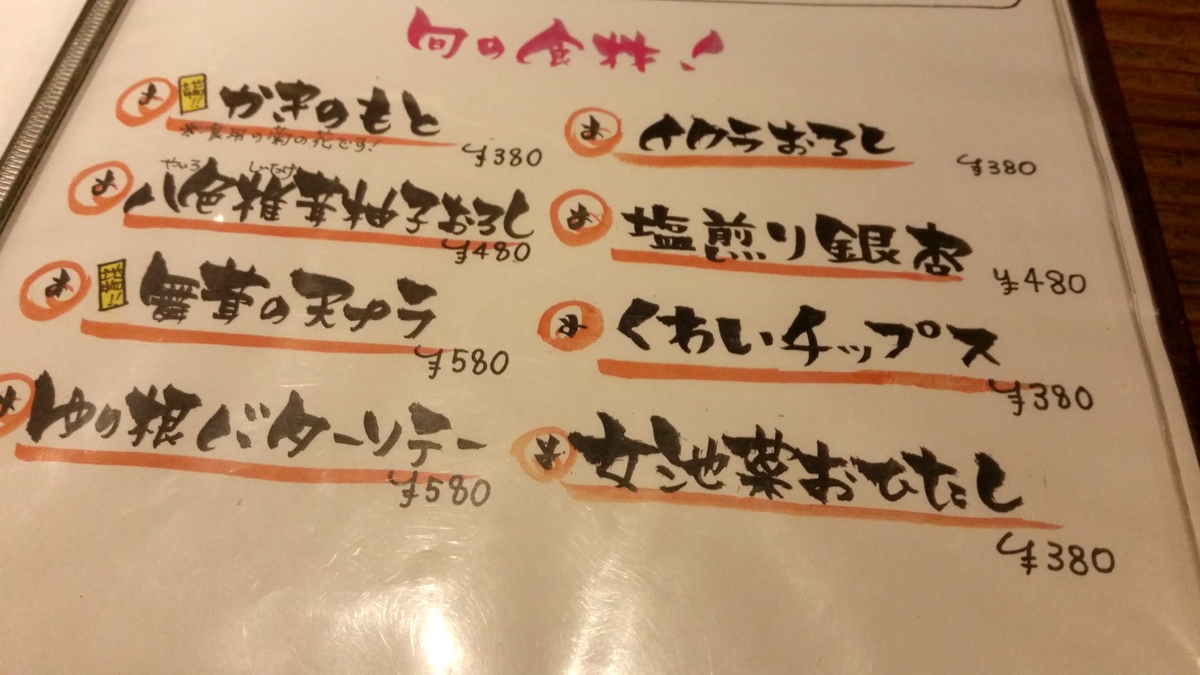 旬の食材!
かきのもと
※食用の菊の花です!
¥380
やいろ しいたけ
八色椎茸柚子おろし
¥480
舞茸の天プラ
¥580
ゆり根バターソテー
¥580
イクラおろし
¥380
塩煎り銀杏
¥480
くわいチップス
¥380
女池菜おひたし
¥380